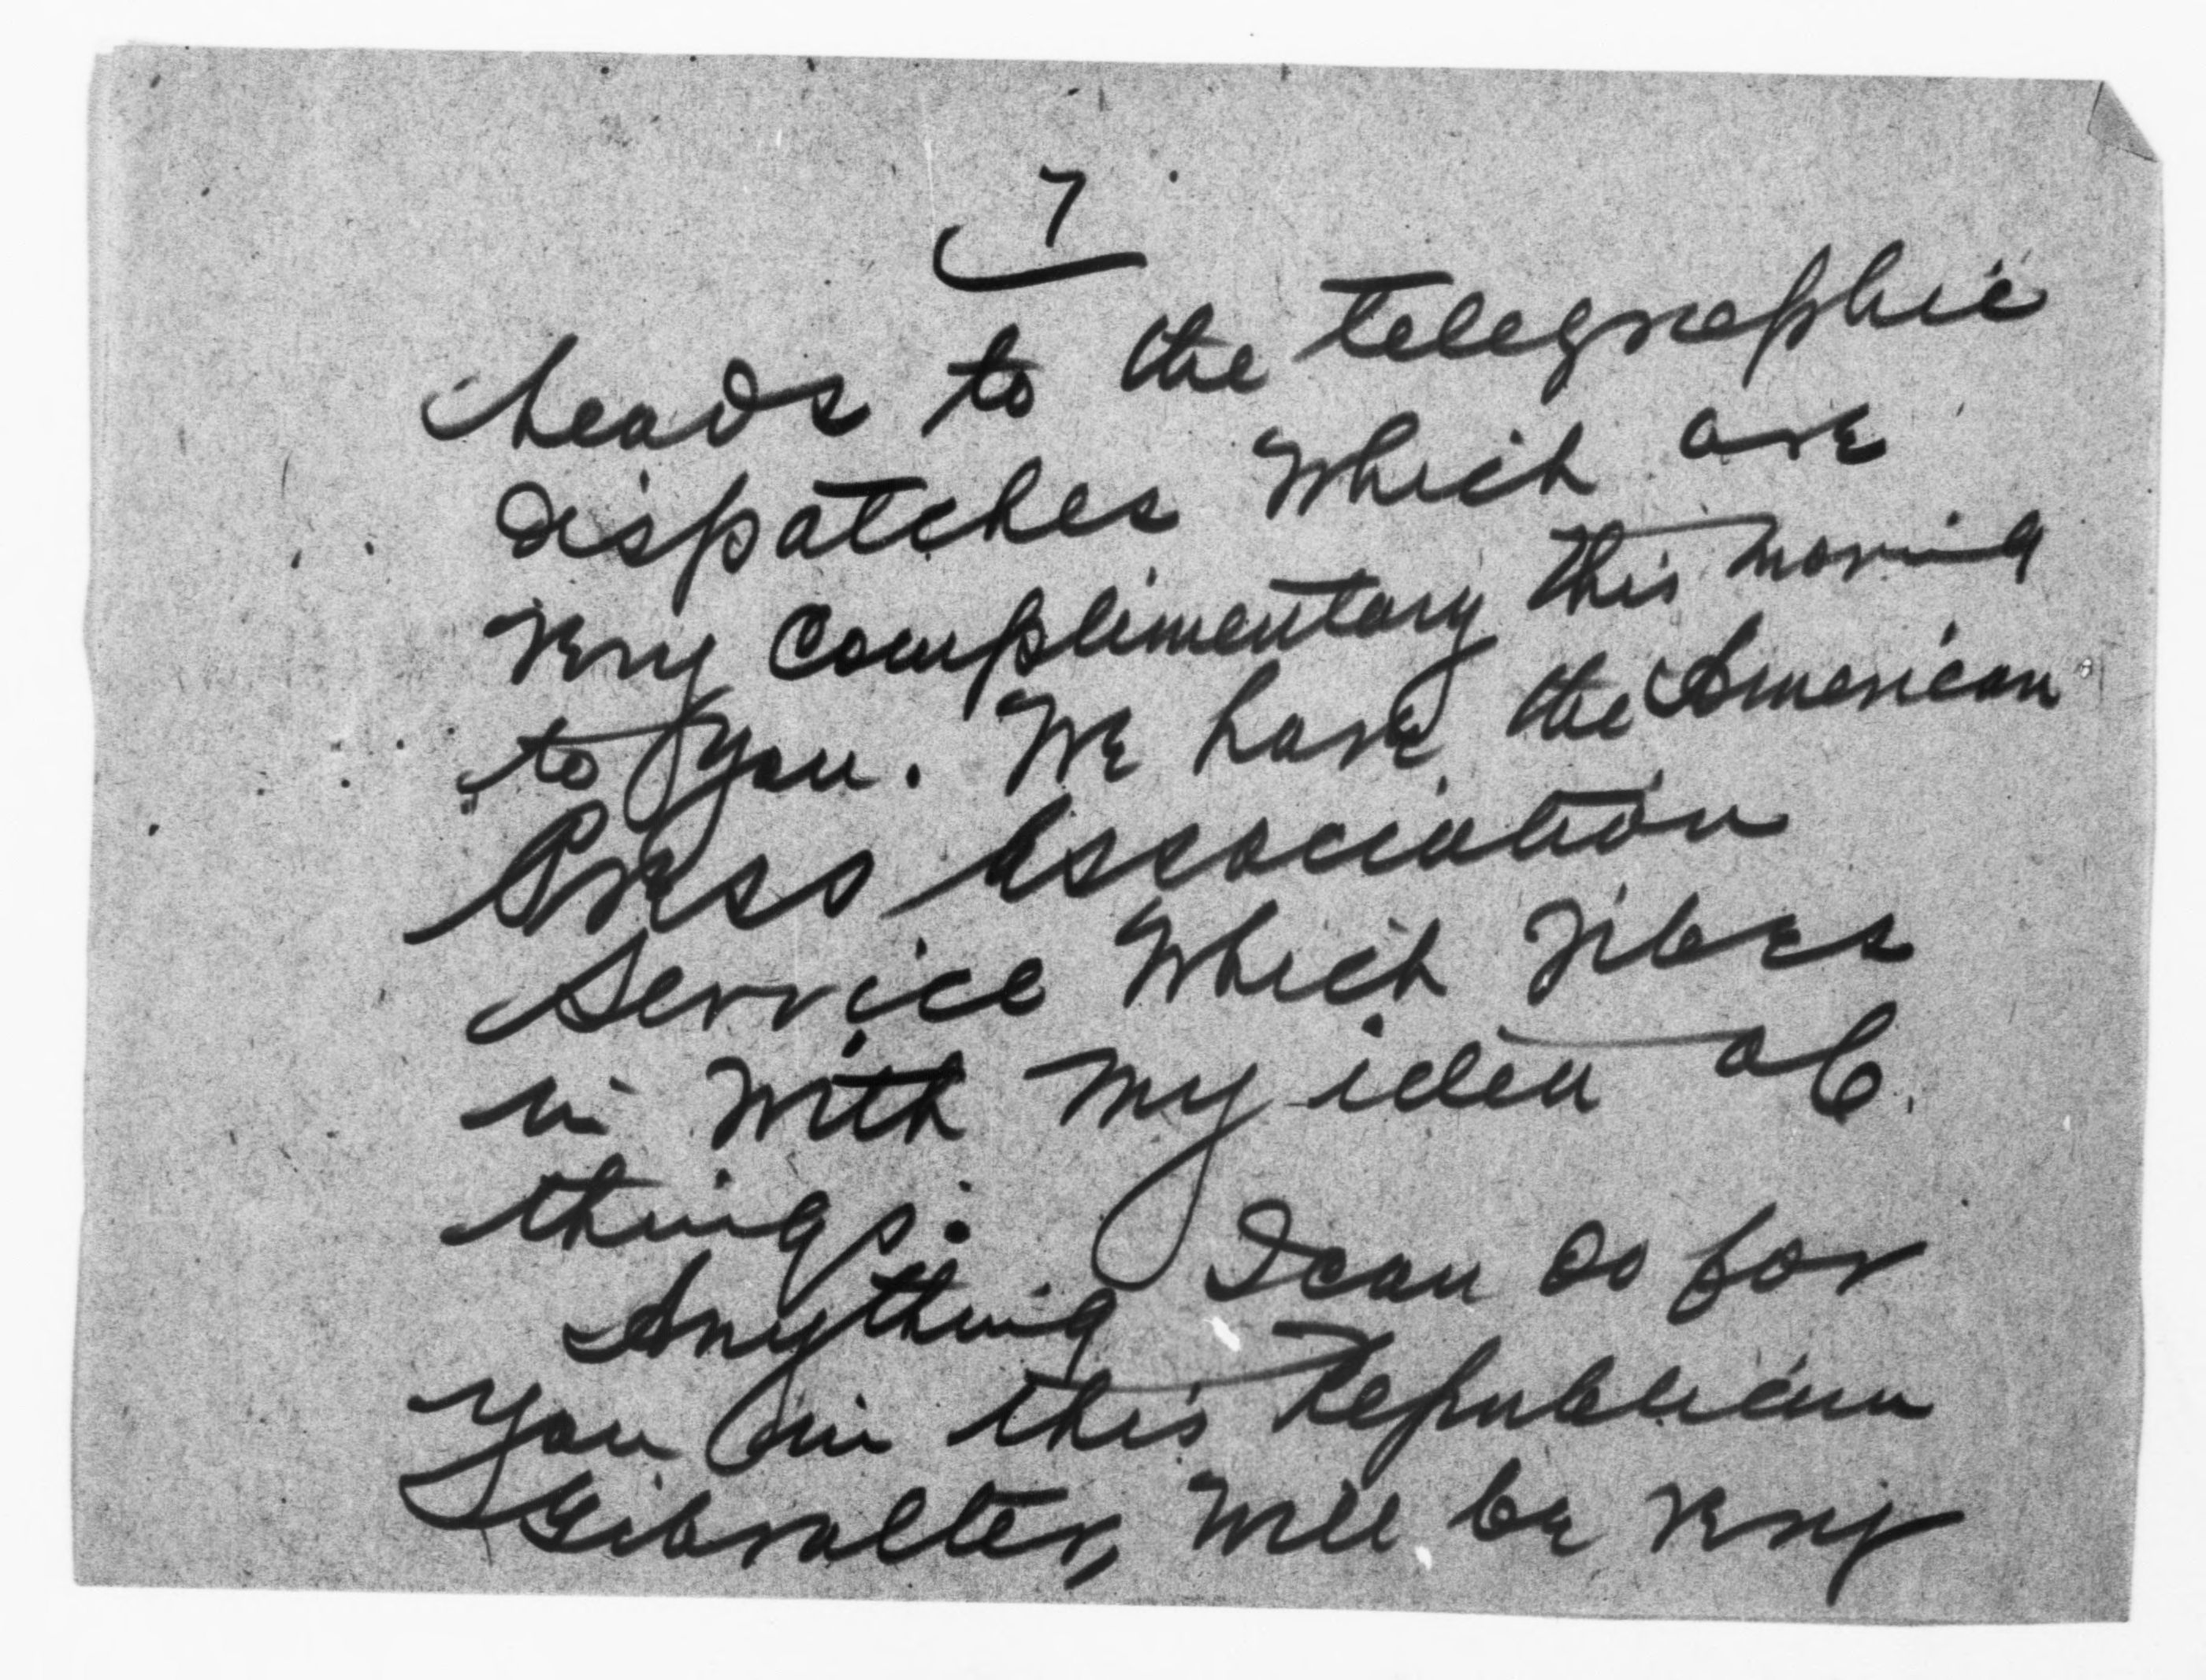 7
heads to the telegraphic
dispatches which are
very complimentary this morning
to you. We have the American
Press Association
Service which jibes
in with my idea of
things.
Anything I can do for
you in this Republican
Gibralter, will be very